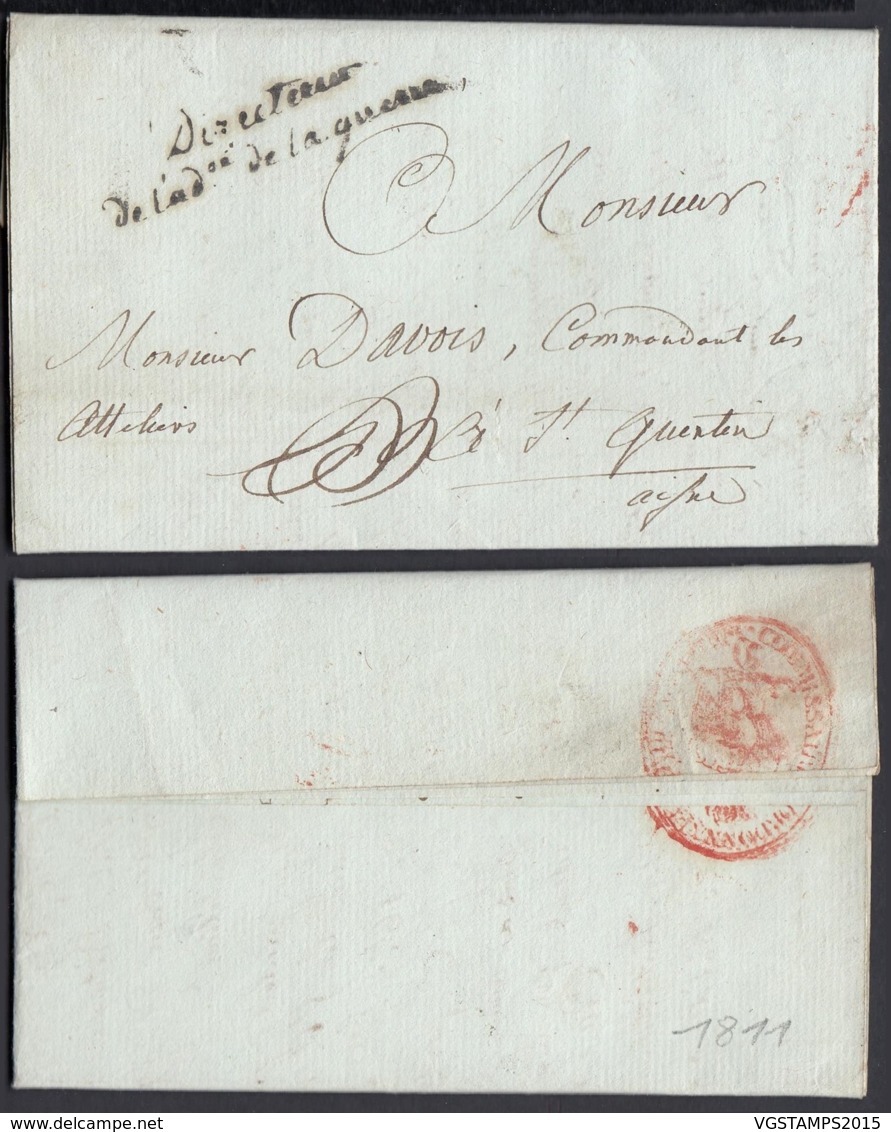 Directeur
de l'ad.on de la guerre,
Monsieur
Monsieur Davois, Commandant les
Atteliers à St. Quentin
aisne
COMMISSAIRE
ORDONN
1811
VGSTAMPS2015